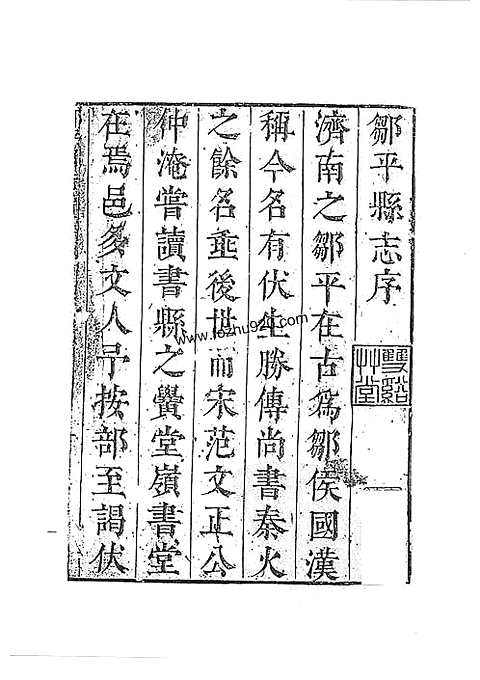 鄒平縣志序
濟南之鄒平在古爲鄒侯國漢
稱今名有伏生勝傳尚書秦火
之餘名垂後世而宋范文正公
仲淹嘗讀書縣之黌堂嶺書堂
在焉邑多文人予按部至謁伏
雙谿
艸堂
www.fozhu920.com